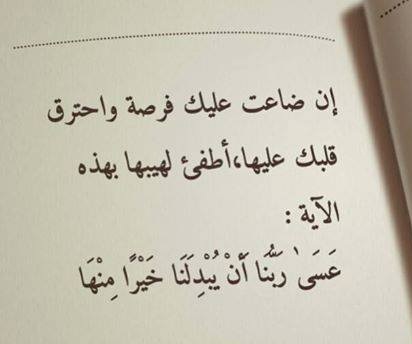 إن ضاعت عليك فرصة واحترق
قلبك عليها،أطفئ لهيبها بهذه
الآية :
عَسَىٰ رَبُّنَا أَنْ يُبْدِلَنَا خَيْرًا مِنْهَا